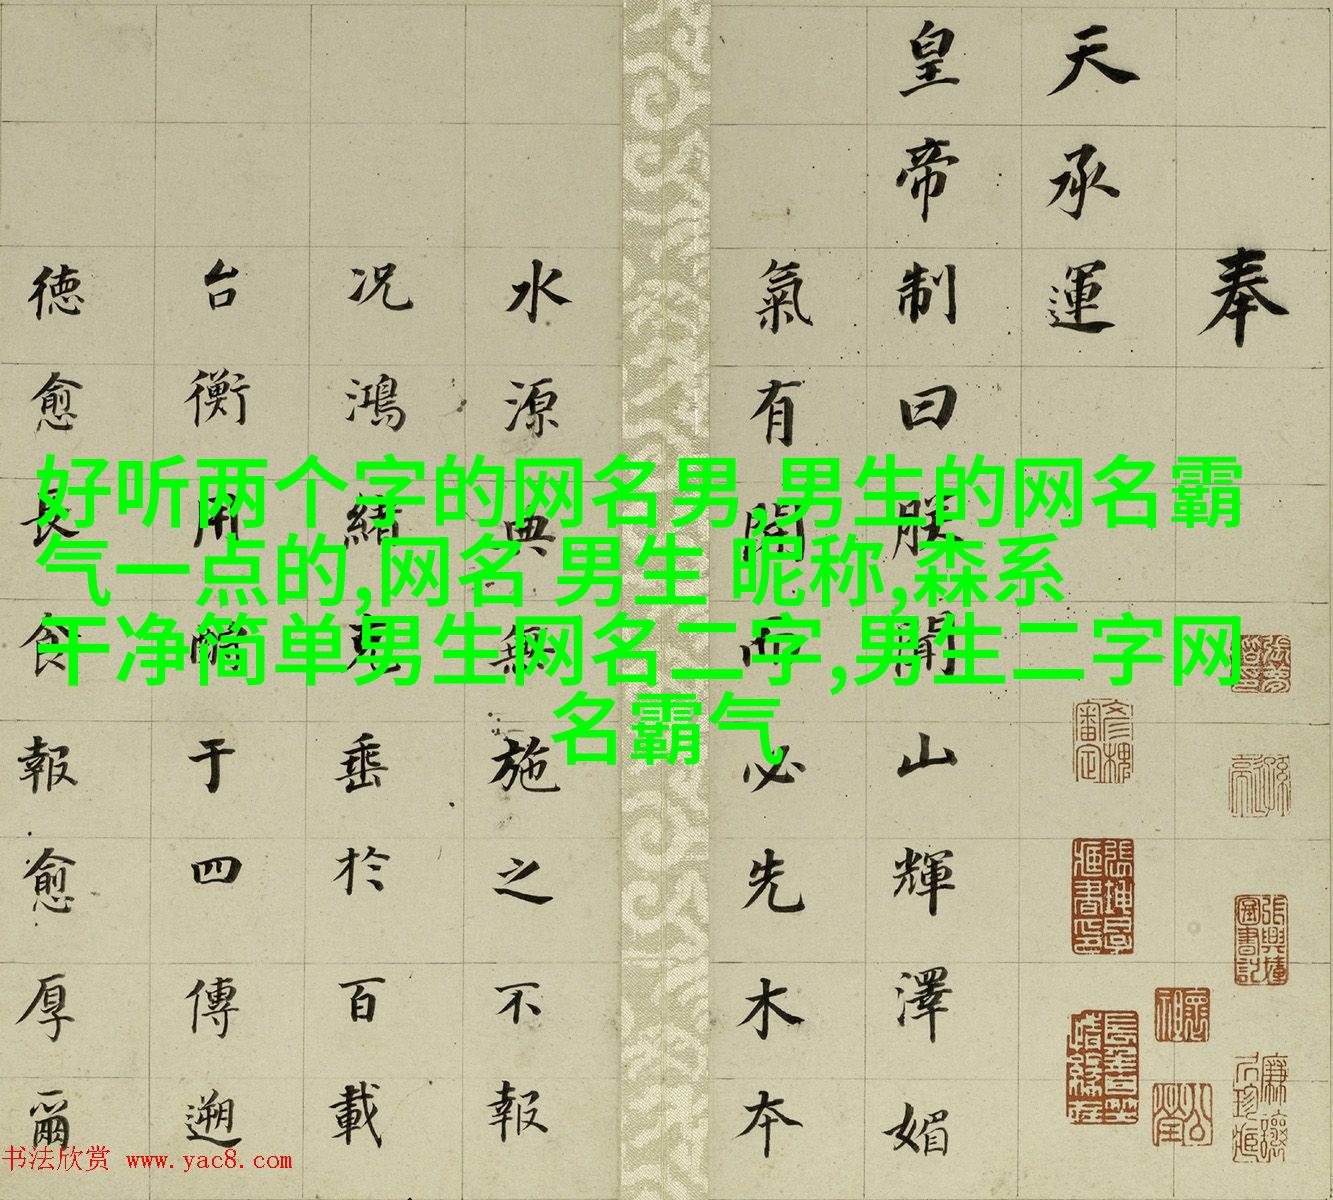 奉
天承運
皇帝制曰朕聞山輝澤媚
氣有開而必先木本
水源典無施之不報
况鴻緒克垂於百載
台衡用酬于四傳遡
德愈長食報愈厚爾
好听两个字的网名男,男生的网名霸
气一点的,网名 男生 昵称,森系
干净简单男生网名二字,男生二字网
名霸气
书法欣赏 www.yac8.com